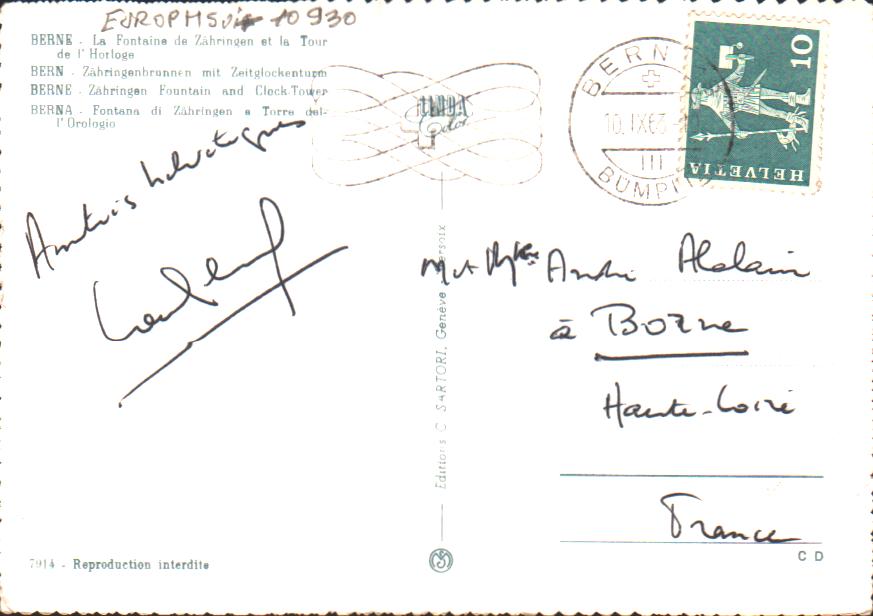 EUROPMSuis 10930
BERNE - La Fontaine de Zähringen et la Tour
de l'Horloge
BERN - Zähringenbrunnen mit Zeitglockenturm
BERNE - Zähringen Fountain and Clock-Tower
BERNA - Fontana di Zähringen e Torre del-
l'Orologio
BERN
10.IX63
III
BÜMPLIZ
10
HELVETIA
Amitiés helvétiques
M et Mme André
à Bozne
Haute-Loire
France
Editions C. SARTORI, Genève Versoix
7914 - Reproduction interdite
C D